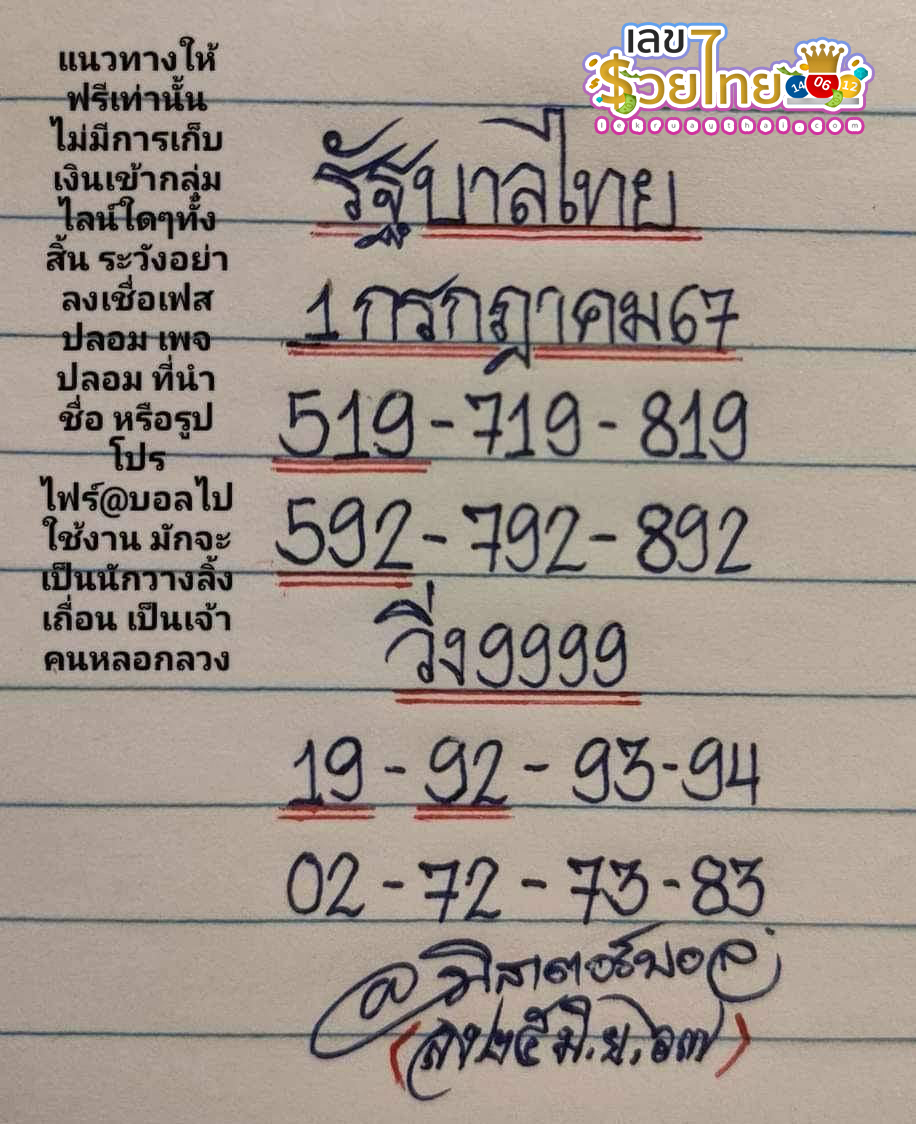 แนวทางให้
ฟรีเท่านั้น
ไม่มีการเก็บ
เงินเข้ากลุ่ม
ไลน์ใดๆทั้ง
สิ้น ระวังอย่า
ลงเชื่อเฟส
ปลอม เพจ
ปลอม ที่นำ
ชื่อ หรือรูป
โปร
ไฟร์@บอลไป
ใช้งาน มักจะ
เป็นนักวางลิ้ง
เถื่อน เป็นเจ้า
คนหลอกลวง
เลข 7
รวยไทย 14 06 12
lekruaythai.com
รัฐบาลไทย
1 กรกฎาคม 67
519-719-819
592-792-892
วิ่ง 9999
19-92-93-94
02-72-73-83
@มิสเตอร์บอล
(ลง ๒๕ มิ.ย. ๖๗)